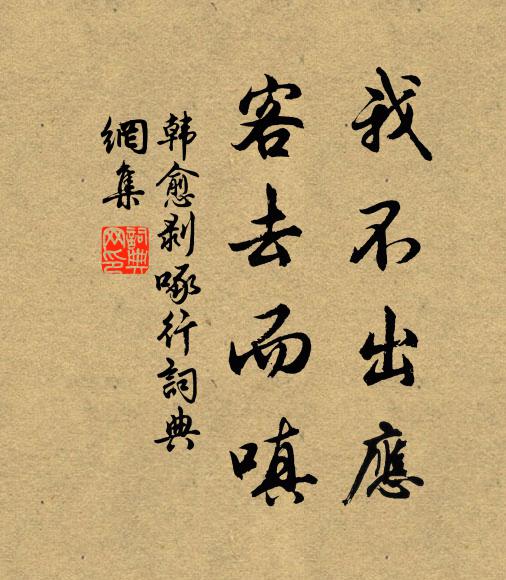 我不出應
客去而嗔
韓愈剥啄行詞典
網集
詞典
网印